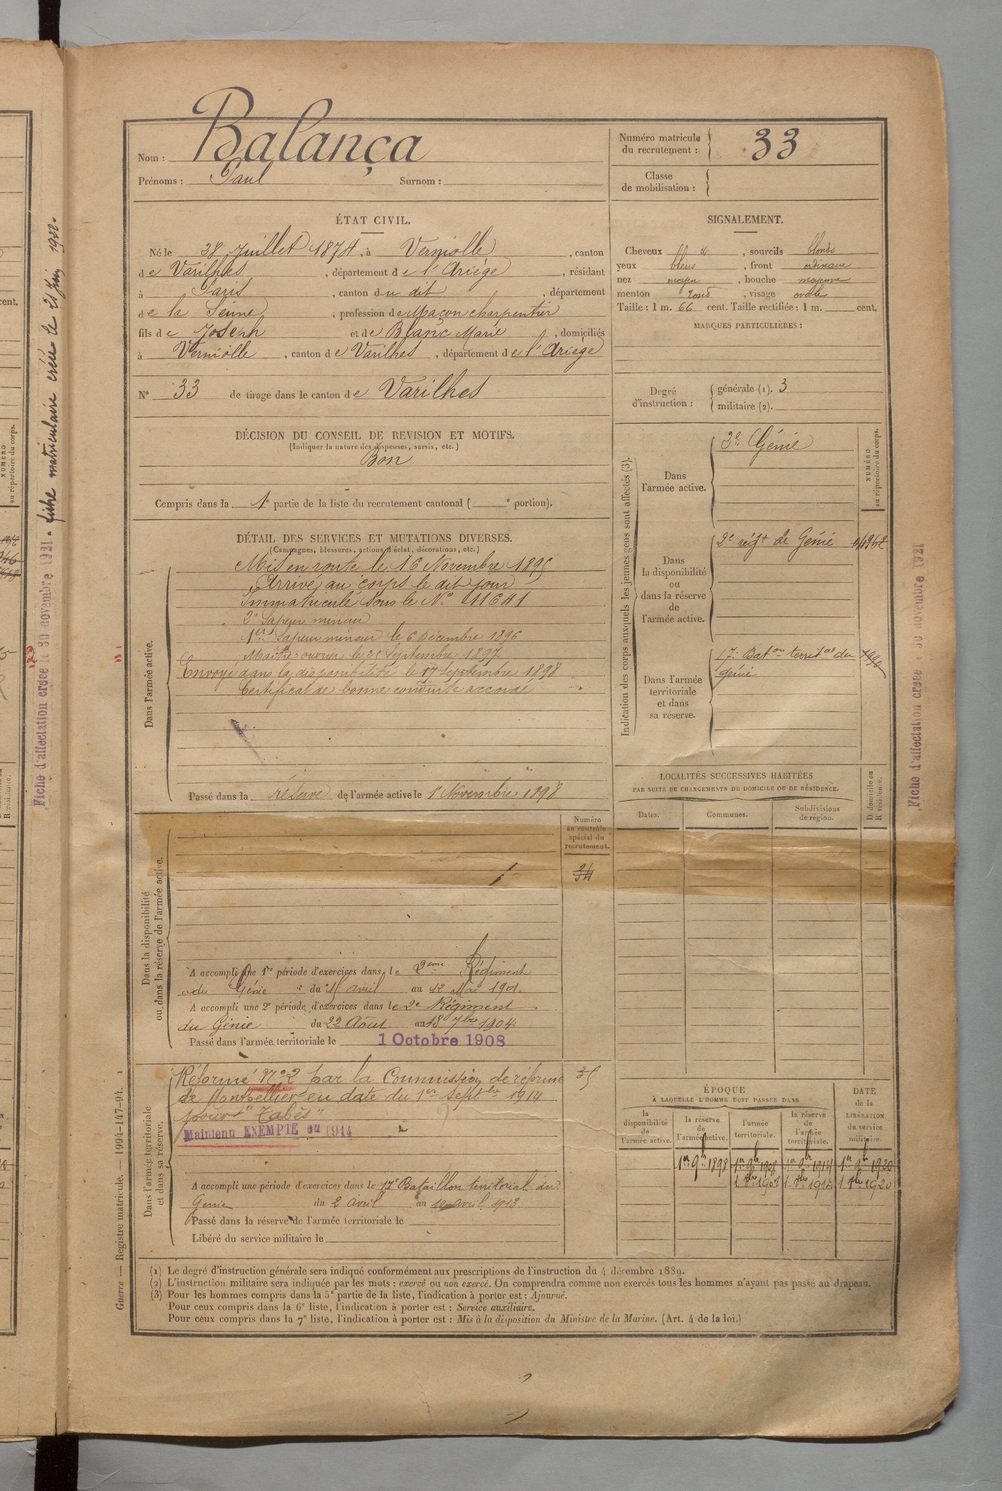 Nom : Balança
Prénoms : Paul Surnom :
Numéro matricule du recrutement : 33
Classe de mobilisation :
ÉTAT CIVIL.
Né le 28 Juillet 1874, à Verniolle, canton
de Varilhes, département de l'Ariège, résidant
à Paris, canton du dit, département
de la Seine, profession de Maçon charpentier
fils de Joseph et de Blanc Marie, domiciliés
à Verniolle, canton de Varilhes, département de l'Ariège
N° 33 de tirage dans le canton de Varilhes
DÉCISION DU CONSEIL DE REVISION ET MOTIFS.
(Indiquer la nature des dispenses, sursis, etc.)
Bon
Compris dans la 1e partie de la liste du recrutement cantonal ( e portion).
SIGNALEMENT.
Cheveux, sourcils blonds
yeux bleus, front ordinaire
nez moyen, bouche moyenne
menton rond, visage ovale
Taille : 1 m. 66 cent. Taille rectifiée : 1 m. cent.
MARQUES PARTICULIÈRES :
Degré d'instruction : générale (1). 3
militaire (2).
DÉTAIL DES SERVICES ET MUTATIONS DIVERSES.
(Campagnes, blessures, actions d'éclat, décorations, etc.)
Dans l'armée active.
Mis en route le 16 Novembre 1895
Arrivé au corps le dit jour
Immatriculé sous le N°
2e Sapeur mineur
1er Sapeur mineur le 6 Décembre 1896
Maître ouvrier le Septembre 1897
Envoyé dans la disponibilité le 17 Septembre 1898
Certificat de bonne conduite accordé
Passé dans la réserve de l'armée active le 1 Novembre 1898
Indication des corps auxquels les jeunes gens sont affectés (3).
NUMÉRO au répertoire du corps.
Dans l'armée active.
2e Génie
Dans la disponibilité ou dans la réserve de l'armée active.
2e régt de Génie
Dans l'armée territoriale et dans sa réserve.
17e Baton territal du
Génie
LOCALITÉS SUCCESSIVES HABITÉES
PAR SUITE DE CHANGEMENTS DE DOMICILE OU DE RÉSIDENCE.
Dates. Communes. Subdivisions de région. D domicile ou R résidence.
Dans la disponibilité ou dans la réserve de l'armée active.
Numéro au contrôle spécial du recrutement.
34
A accompli une 1re période d'exercices dans le 2eme Régiment
du Génie du avril au 12 Mai 1901
A accompli une 2e période d'exercices dans le 2e Régiment
du Génie du 22 Août au 18 7bre 1904
Passé dans l'armée territoriale le 1 Octobre 1908
Dans l'armée territoriale et dans sa réserve.
Réformé N° 2 par la Commission de réforme
de Montpellier en date du 1er septbre 1914
pour "Tabès"
Maintenu EXEMPTÉ en 1914
A accompli une période d'exercices dans le 17e Bataillon territorial du
Génie du 2 avril au avril 1913
Passé dans la réserve de l'armée territoriale le
Libéré du service militaire le
ÉPOQUE
À LAQUELLE L'HOMME DOIT PASSER DANS
la disponibilité de l'armée active. la réserve de l'armée active. l'armée territoriale. la réserve de l'armée territoriale.
DATE de la LIBÉRATION du service militaire.
1er 9bre 1898
(1) Le degré d'instruction générale sera indiqué conformément aux prescriptions de l'instruction du 4 décembre 1889.
(2) L'instruction militaire sera indiquée par les mots : exercé ou non exercé. On comprendra comme non exercés tous les hommes n'ayant pas passé au drapeau.
(3) Pour les hommes compris dans la 5e partie de la liste, l'indication à porter est : Ajourné.
Pour ceux compris dans la 6e liste, l'indication à porter est : Service auxiliaire.
Pour ceux compris dans la 7e liste, l'indication à porter est : Mis à la disposition du Ministre de la Marine. (Art. 4 de la loi.)
Guerre — Registre matricule. — 1994-147-94.
fiche matriculaire créée le 21 Juin 1922.
Fiche d'affectation créée le 30 novembre 1921
Fiche d'affectation créée le 30 novembre 1921